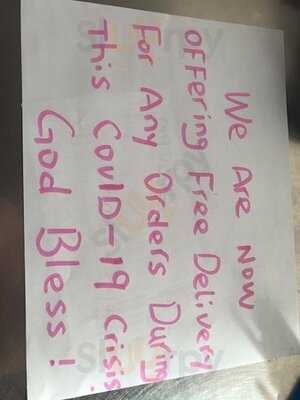 We Are Now
OFFering Free Delivery
For Any Orders During
This CoviD-19 Crisis
God Bless!